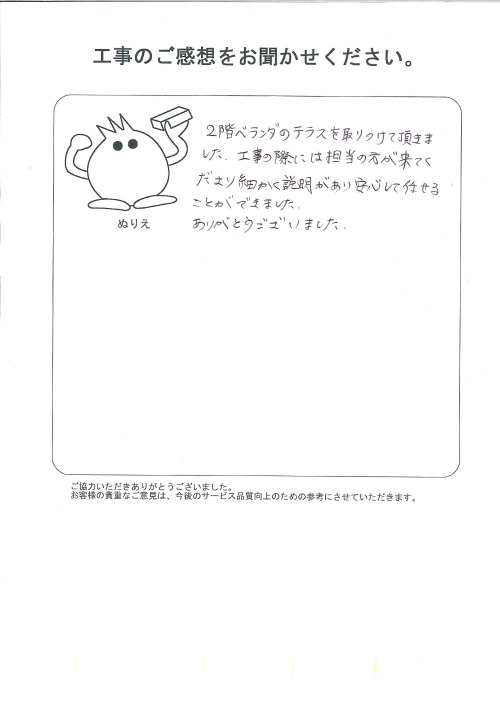 工事のご感想をお聞かせください。
2階ベランダのテラスを取りつけて頂きま
した。工事の際には担当の方が来てく
ださり細かく説明があり安心して任せる
ことができました。
ありがとうございました。
ぬりえ
ご協力いただきありがとうございました。
お客様の貴重なご意見は、今後のサービス品質向上のための参考にさせていただきます。